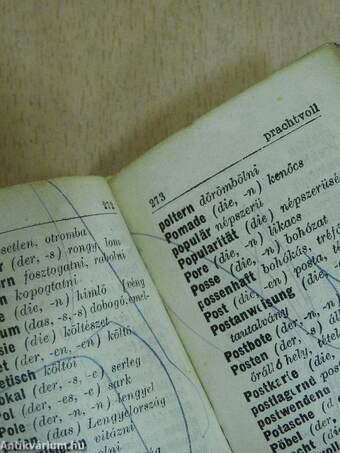 272
setlen, otromba
(der, -s) rongy, lom
fosztogatni, rabolni
kopogtatni
(die, -n) himlő
(das, -s) dobogó,
(die) költészet
(der, -en, -en) költő
etisch költői
okal (der, -s) serleg
Pol (der, -e) sark
Pole (der, -n, -n) lengyel
(das) Lengyelország
vitázni
273
prachtvoll
poltern dörömbölni
Pomade (die, -n) kenőcs
populär népszerű
Popularität (die) népszerűsé
Pore (die, -n) likacs
Posse (die, -n) bohózat
possenhaft bohókás, tréfá
Post (die, -en) posta,
Postanweisung
tautalvány
Postbote (der, -n,
Posten (der, -s)
őrálló hely,
Postkarte (die,
postlagernd
postwendend
Potasche (die,
Pöbel (der,
Antikvárium.hu